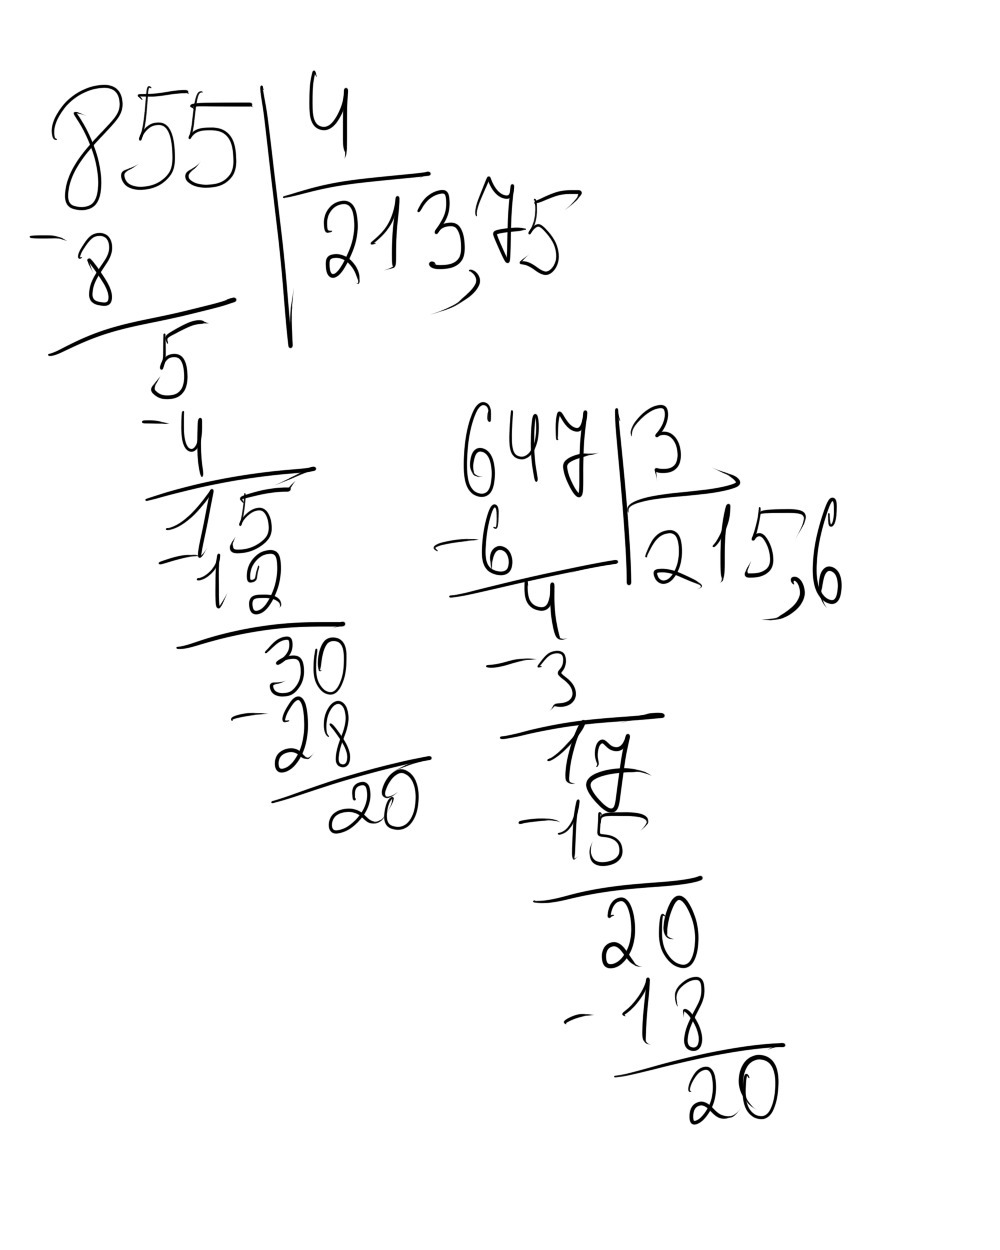 855 4
213,75
-8
5
-4
15
-12
30
-28
20
647 3
215,6
-6
4
-3
17
-15
20
-18
20